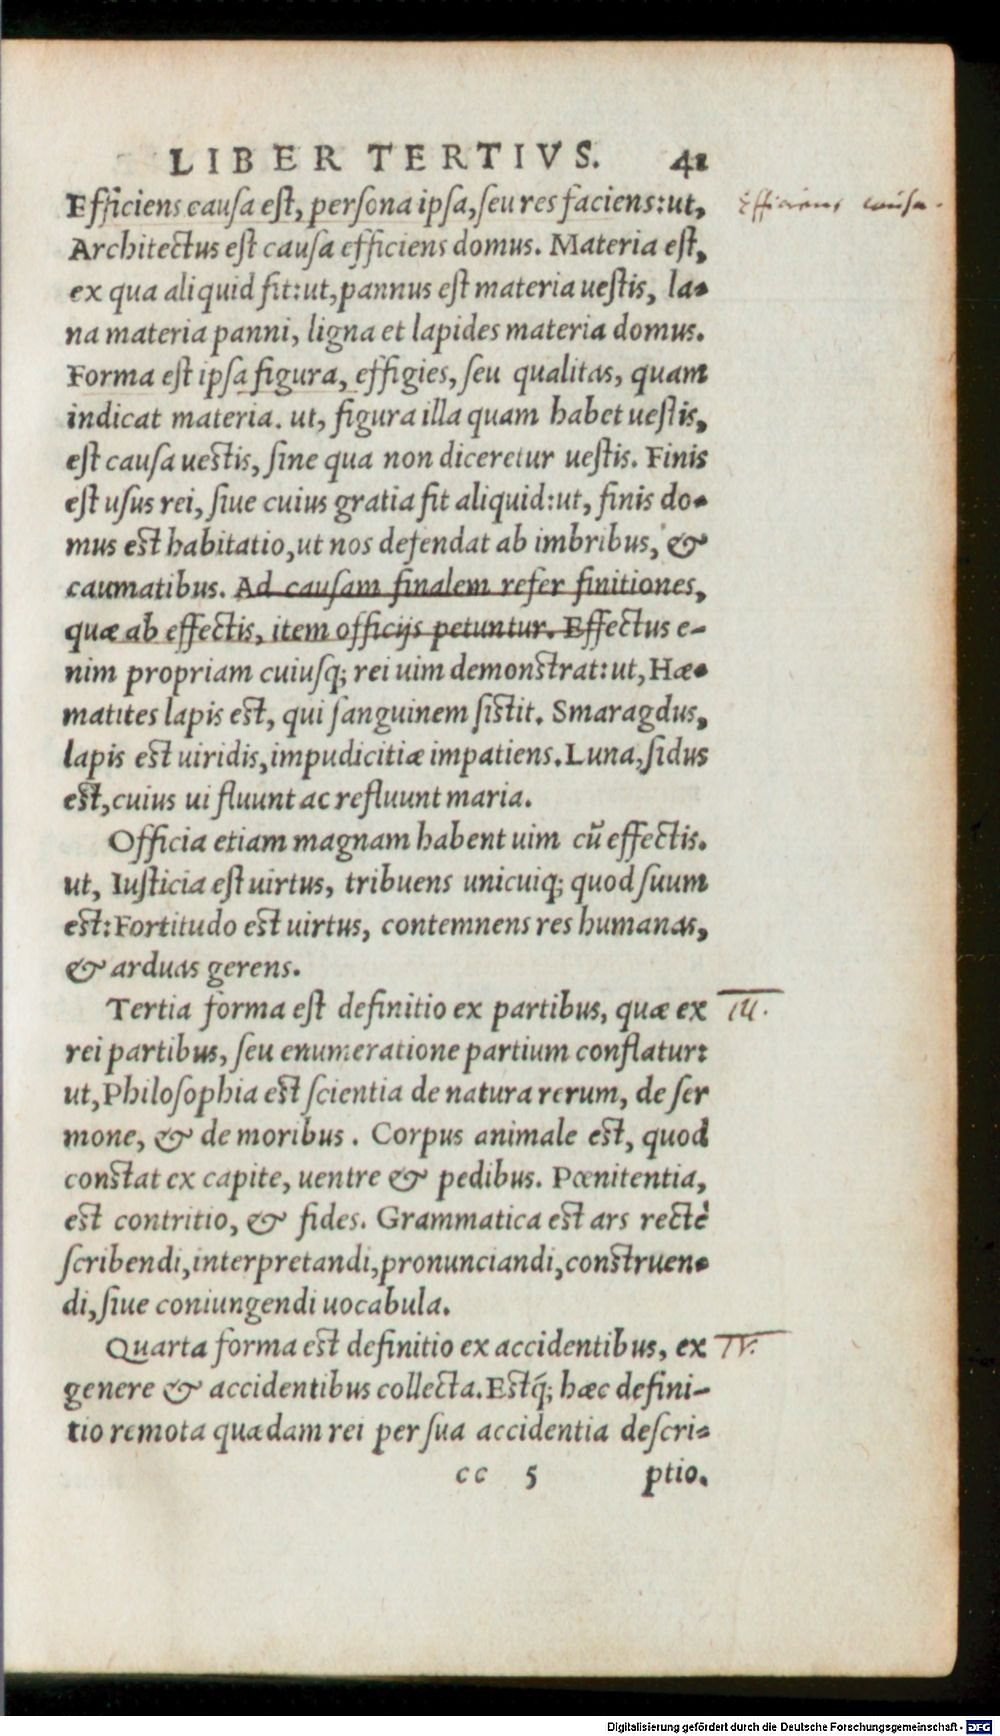 LIBER TERTIVS. 41
Efficiens causa est, persona ipsa, seu res faciens: ut, Efficiens causa.
Architectus est causa efficiens domus. Materia est,
ex qua aliquid fit: ut, pannus est materia uestis, la-
na materia panni, ligna et lapides materia domus.
Forma est ipsa figura, effigies, seu qualitas, quam
indicat materia. ut, figura illa quam habet uestis,
est causa uestis, sine qua non diceretur uestis. Finis
est usus rei, siue cuius gratia fit aliquid: ut, finis do-
mus est habitatio, ut nos defendat ab imbribus, &
caumatibus. Ad causam finalem refer finitiones,
quæ ab effectis, item officijs petuntur. Effectus e-
nim propriam cuiusq; rei uim demonstrat: ut, Hæ-
matites lapis est, qui sanguinem sistit. Smaragdus,
lapis est uiridis, impudicitiæ impatiens. Luna, sidus
est, cuius ui fluunt ac refluunt maria.
Officia etiam magnam habent uim cũ effectis.
ut, Iusticia est uirtus, tribuens unicuiq; quod suum
est: Fortitudo est uirtus, contemnens res humanas,
& arduas gerens.
Tertia forma est definitio ex partibus, quæ ex III.
rei partibus, seu enumeratione partium conflatur:
ut, Philosophia est scientia de natura rerum, de ser
mone, & de moribus. Corpus animale est, quod
constat ex capite, uentre & pedibus. Pœnitentia,
est contritio, & fides. Grammatica est ars rectè
scribendi, interpretandi, pronunciandi, construen-
di, siue coniungendi uocabula.
Quarta forma est definitio ex accidentibus, ex IV.
genere & accidentibus collecta. Estq́; hæc defini-
tio remota quædam rei per sua accidentia descri-
cc 5 ptio.
Digitalisierung gefördert durch die Deutsche Forschungsgemeinschaft - DFG